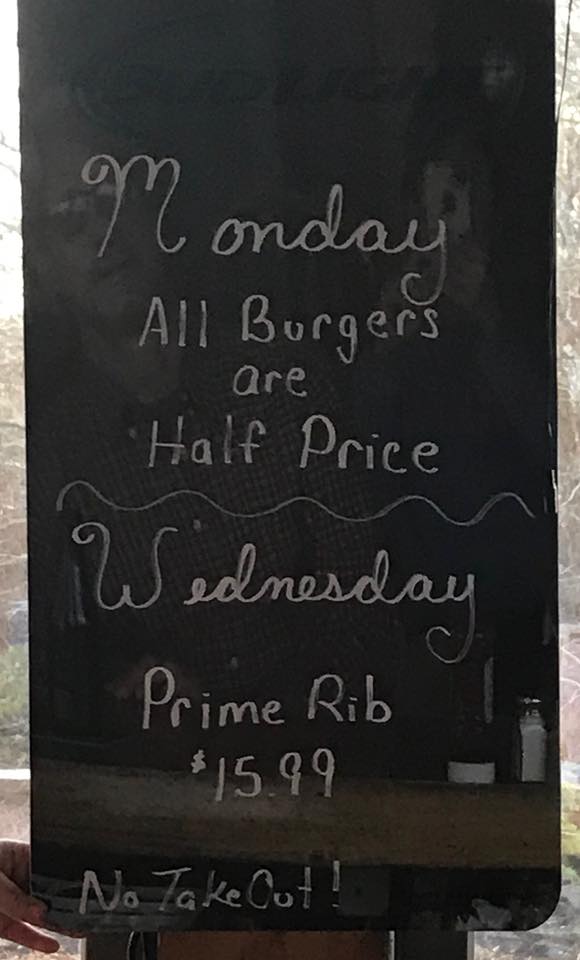 Monday
All Burgers
are
Half Price
Wednesday
Prime Rib
$15.99
No Take Out!